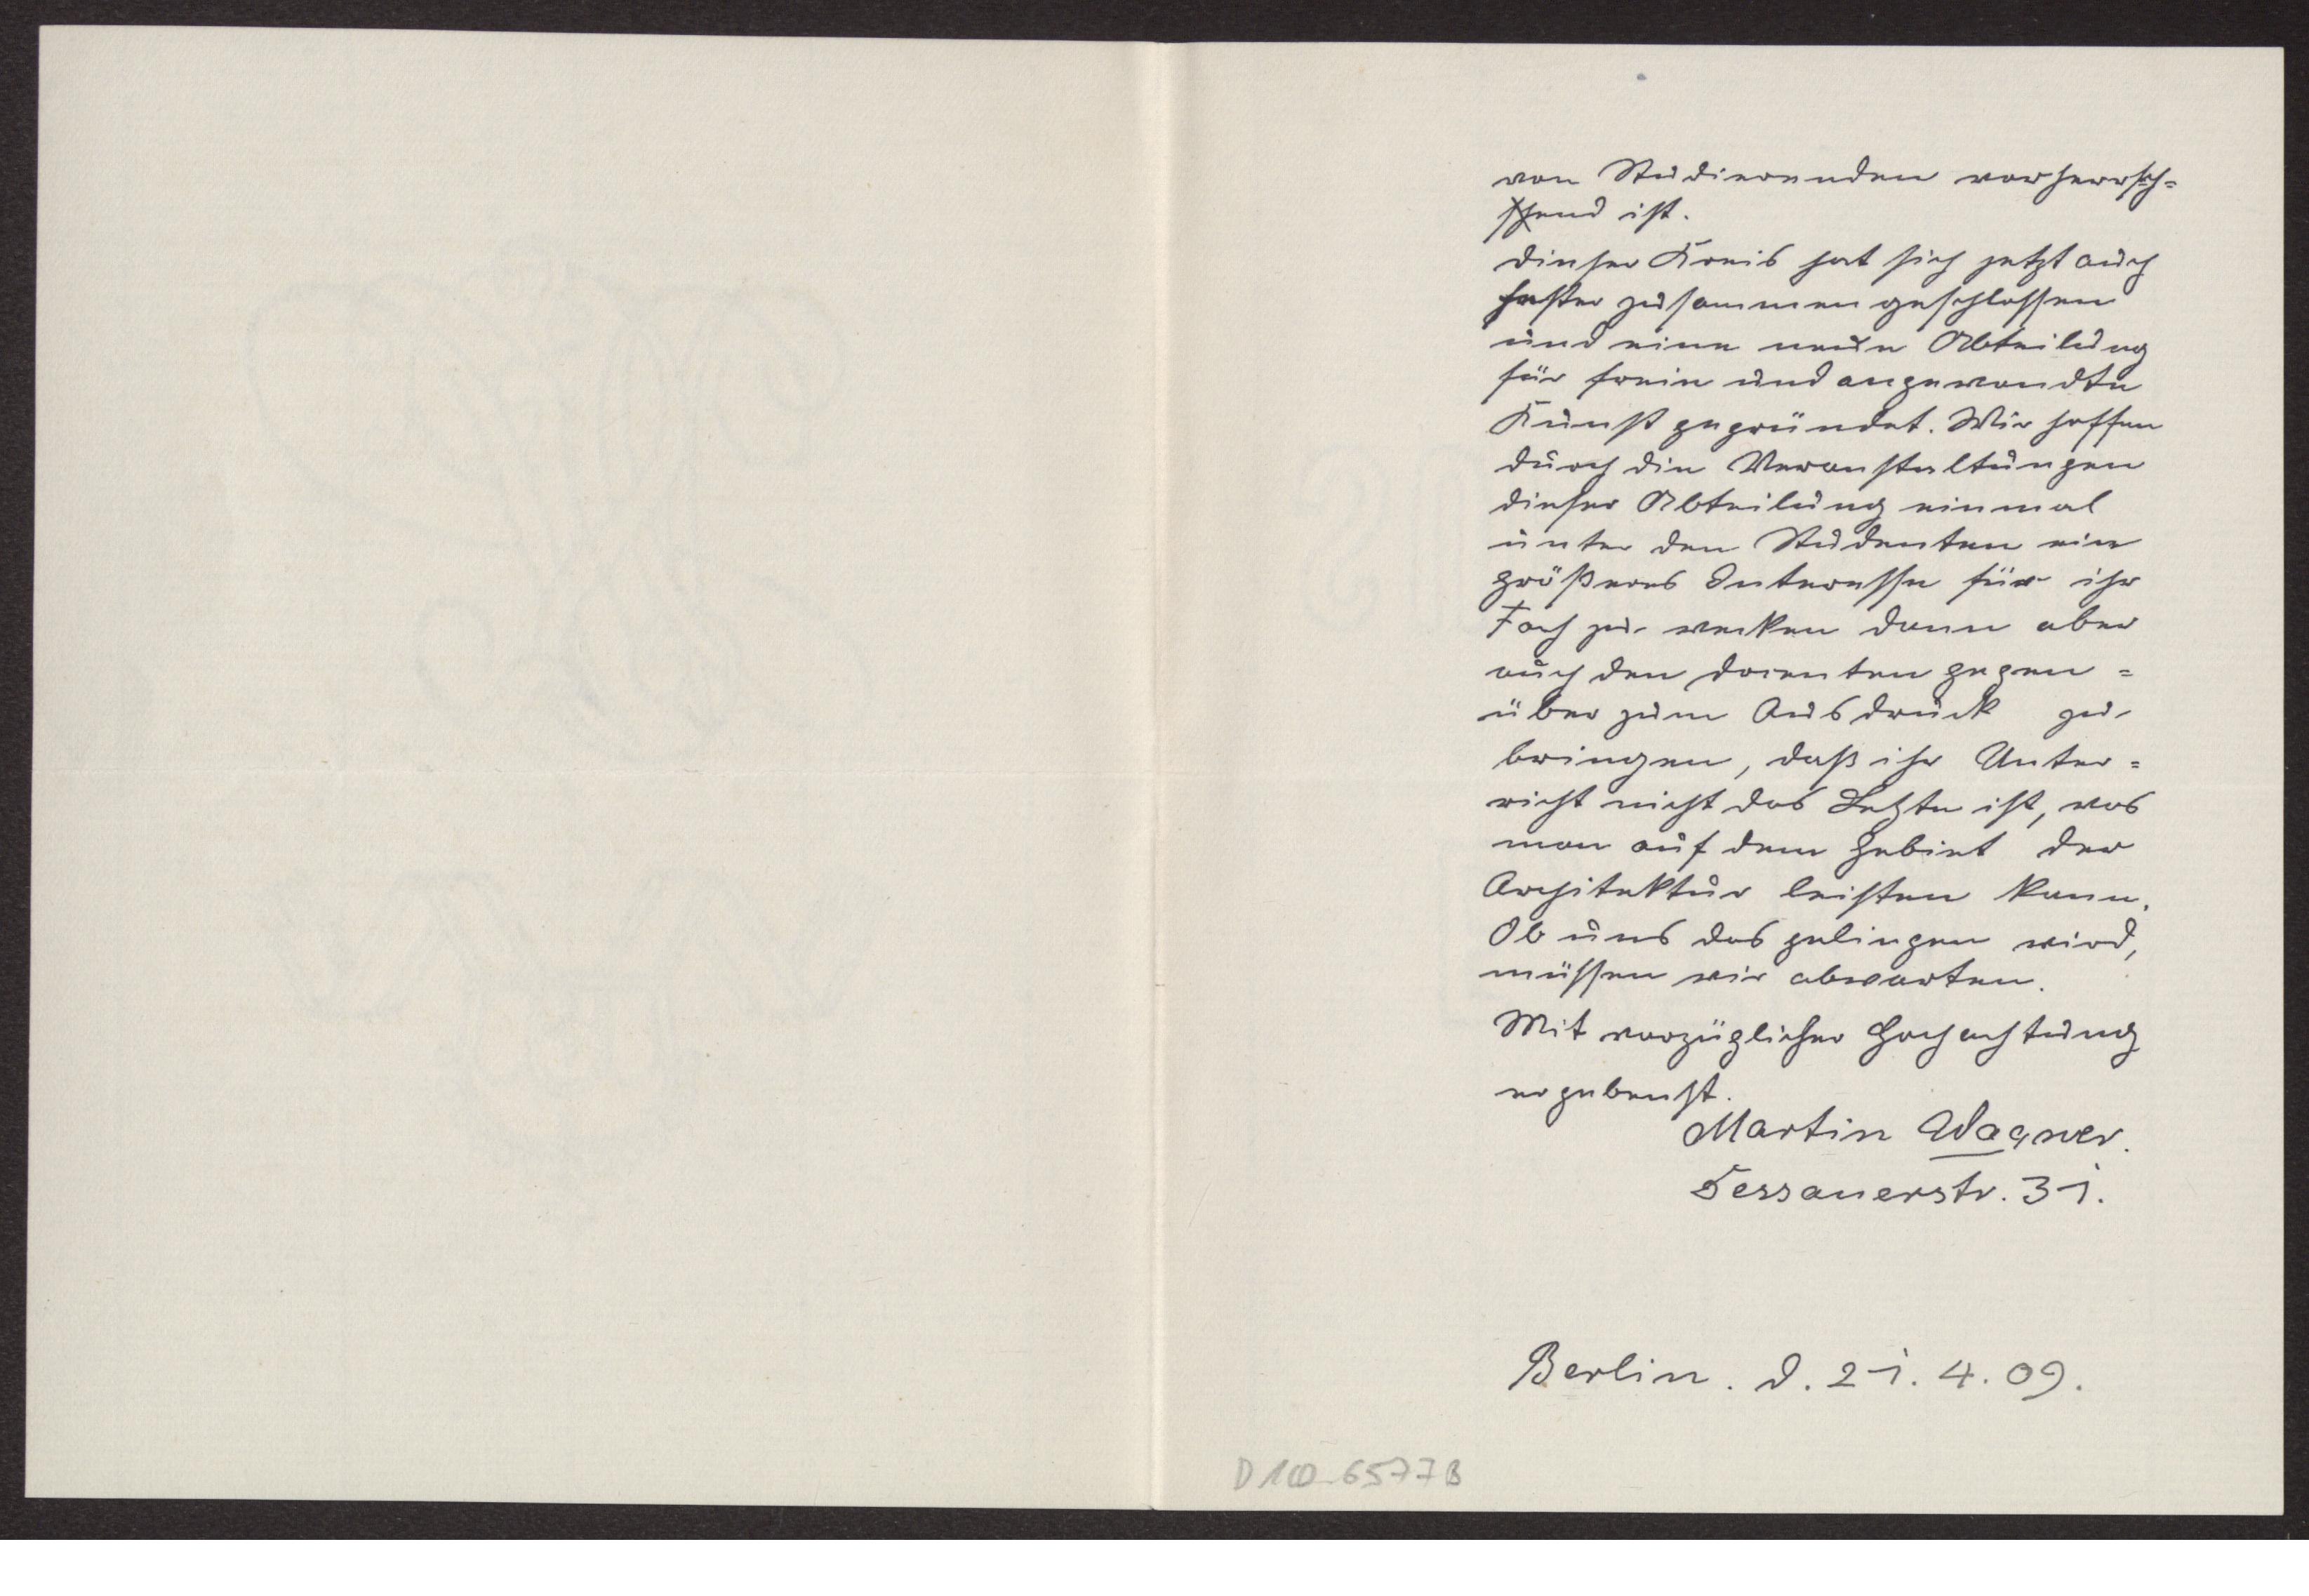 von Studierenden vorherrsch-
schend ist.
Dieser Kreis hat sich jetzt auch
fester zusammen geschlossen
und eine neue Abteilung
für freie und angewandte
Kunst gegründet. Wir hoffen
durch die Veranstaltungen
dieser Abteilung einmal
unter den Studenten ein
größeres Interesse für ihr
Fach zu wecken dann aber
auch den Docenten gegen-
über zum Ausdruck zu
bringen, daß ihr Unter-
richt nicht das Letzte ist, was
man auf dem Gebiet der
Architektur leisten kann.
Ob uns das gelingen wird,
müssen wir abwarten.
Mit vorzüglicher Hochachtung
ergebenst.
Martin Wagner.
Dessauerstr. 31.
Berlin. d. 21. 4. 09.
D100-6577B